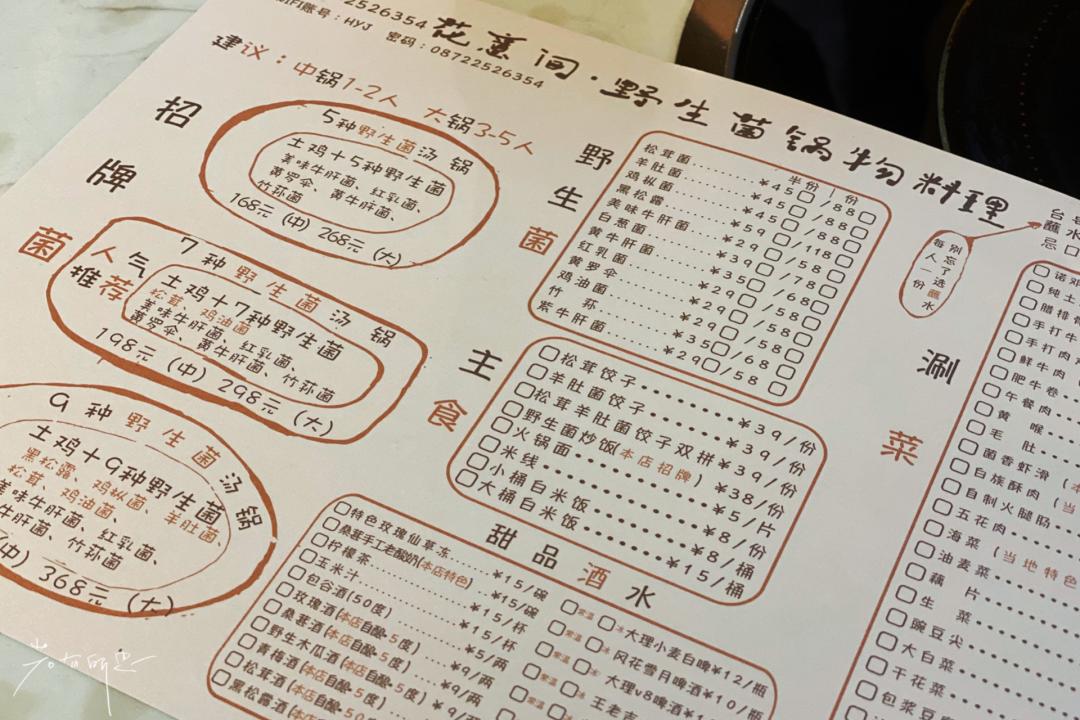 2526354
WIFI账号：HYJ 密码：08722526354
花裏间·野生菌锅物料理
建议：中锅1-2人 大锅3-5人
招牌菌
5种野生菌汤锅
土鸡+5种野生菌
美味牛肝菌、红乳菌、
黄罗伞、黄牛肝菌、
竹荪菌
168元(中) 268元(大)
人气推荐
7种野生菌汤锅
土鸡+7种野生菌
松茸、鸡油菌
美味牛肝菌、红乳菌、
黄罗伞、黄牛肝菌、竹荪菌
198元(中) 298元(大)
9种野生菌汤锅
土鸡+9种野生菌
黑松露、鸡枞菌、羊肚菌、
松茸、鸡油菌、
美味牛肝菌、红乳菌、
牛肝菌、竹荪菌
(中) 368元(大)
野生菌
半份 / 份
松茸菌 ¥45/88
羊肚菌 ¥45/88
鸡枞菌 ¥45/88
黑松露 ¥59/118
美味牛肝菌 ¥39/78
白葱菌
黄牛肝菌
红乳菌
黄罗伞
鸡油菌
竹荪
紫牛肝菌 ¥29/58
主食
松茸饺子 ¥39/份
羊肚菌饺子 ¥39/份
松茸羊肚菌饺子双拼 ¥39/份
野生菌炒饭(本店招牌) ¥38/份
火锅面 ¥5/片
米线 ¥8/份
小桶白米饭 ¥8/桶
大桶白米饭 ¥15/桶
甜品酒水
特色玫瑰仙草冻 ¥15/碗
桑葚手工老酸奶(本店特色) ¥15/碗
柠檬茶 ¥15/杯
玉米汁
包谷酒(50度) ¥5/两
玫瑰酒(本店自酿·5度) ¥9/两
桑葚酒(本店自酿·5度)
野生木瓜酒(本店自酿·5度)
青梅酒(本店自酿·5度)
松茸酒(本店自酿
黑松露酒(本店自酿·50
常温 冰 大理小麦白啤 ¥12/瓶
常温 冰 风花雪月啤酒 ¥10/瓶
常温 冰 大理v8啤酒 ¥10
常温 冰 王老吉
别忘了选蘸水
每人一份
台号
蘸水
忌口
涮菜
纯土
腊排骨
手打牛
手打肉
鲜牛肉
肥牛卷
午餐肉
黄喉
毛肚
菌香虾滑
白族酥肉
自制火腿肠
五花肉
海菜(当地特色
油麦菜
藕片
生菜
豌豆尖
大白菜
干花菜
包浆豆
老右所思